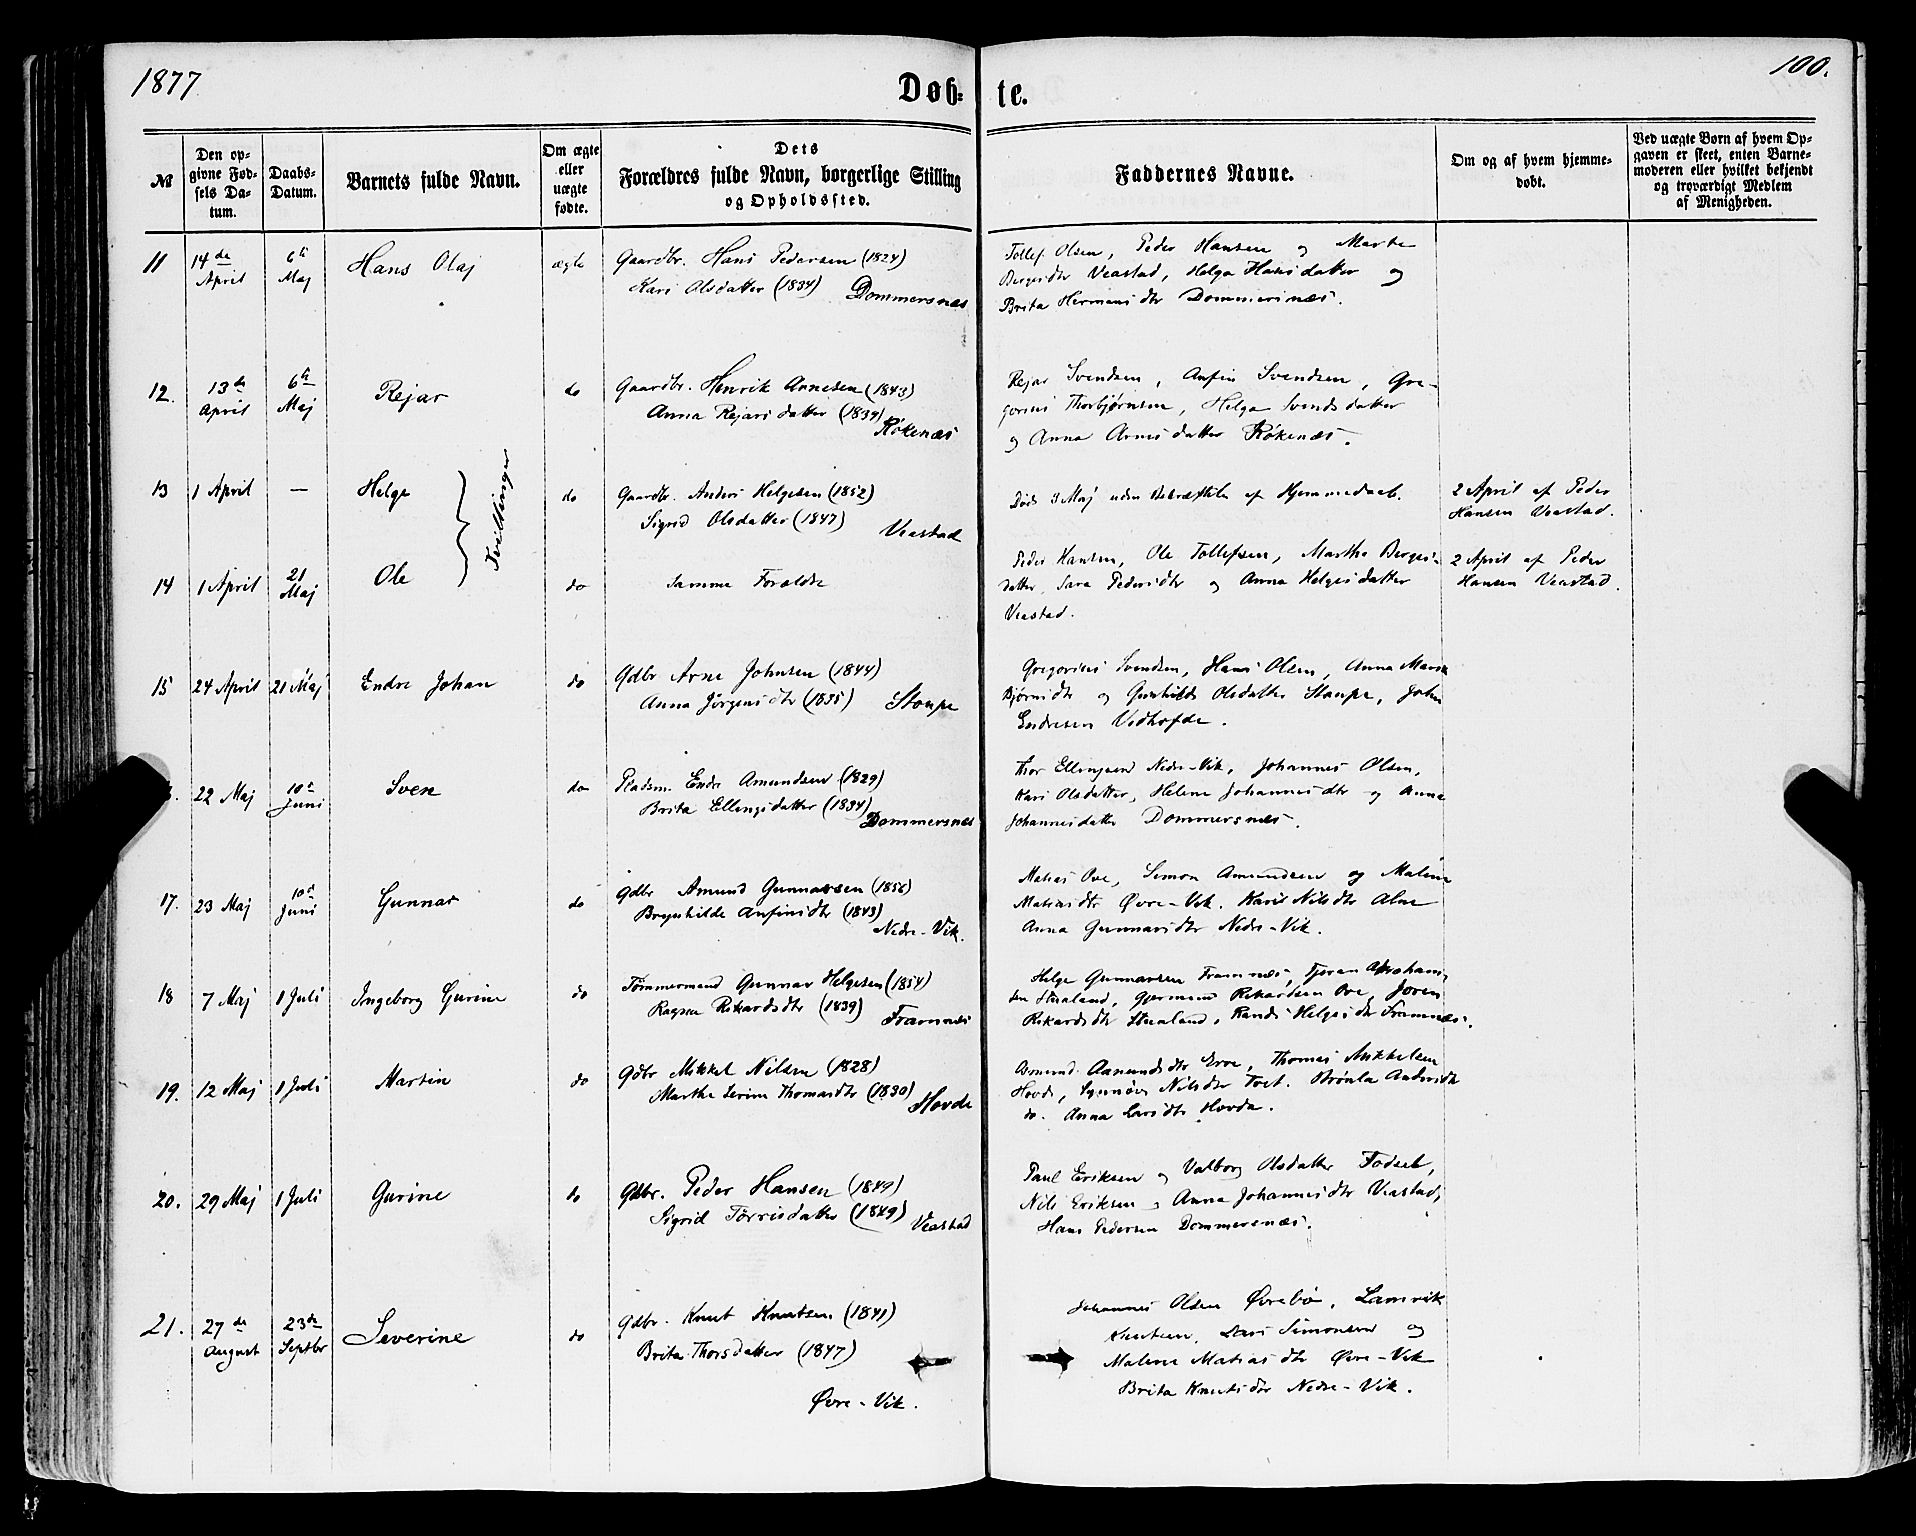 1877
Døb-
te.
100.
№
Den op-
givne Fød-
sels Da-
tum.
Daabs-
Datum.
Barnets fulde Navn.
Om ægte
eller
uægte
fødte.
Dets
Forældres fulde Navn, borgerlige Stilling
og Opholdssted.
Faddernes Navne.
Om og af hvem hjemme-
døbt.
Ved uægte Børn af hvem Op-
gaven er skeet, enten Barne-
moderen eller hvilket bekjendt
og troværdigt Medlem
af Menigheden.
11
14de
April
6te
Maj
Hans Olaj
ægte
Gaardbr. Hans Pedersen (1824)
Kari Olsdatter (1834) Dommersnæs
Tollef Olsen, Peder Hansen og Marte
Bergesdtr Veastad, Helga Hansdatter og
Brita Hermansdtr Dommersnæs.
12.
13de
April
6te
Maj
Rejar
do
Gaardbr. Henrik Arnesen (1843)
Anna Rejarsdatter (1839)
Røkenæs
Rejar Svendsen, Anfin Svendsen, Gre-
gorius Thorbjørnsen, Helga Svendsdatter
og Anna Arnesdatter Røkenæs.
13
1 April
—
Helge
Tvillinger
do
Gaardbr. Anders Helgesen (1852)
Sigrid Olsdatter (1847)
Veastad
Død 3 Maj uden af Hjemmedaab.
2 April af Peder
Hansen Veastad.
14
1 April
21
Maj
Ole
do
Samme Forældre
Peder Hansen, Ole Tollefsen, Martha Berges-
datter, Sara Pedersdtr og Anna Helgesdatter
Veastad.
2 April af Peder
Hansen Veastad.
15
24 April
21 Maj
Endre Johan
do
Gdbr Arne Johnsen (1844)
Anna Jörgensdtr (1835) Staupe
Gregorius Svendsen, Hans Olsen, Anna Maria
Bjørnsdtr og Gunhilde Olsdatter Staupe, John
Endresen Vedhofde.
22 Maj
10de
Juni
Sven
do
Pladsm. Endr Amundsen (1829)
Brita Ellingsdatter (1834)
Dommersnæs
Thor Ellingsen Nedre-Vik, Johannes Olsen,
Kari Olsdatter, Helene Johannesdtr og Anna
Johannesdatter Dommersnæs.
17.
23 Maj
10de
Juni
Gunnar
do
Gdbr Amund Gunnarsen (1856)
Brynhilde Anfinsdtr (1843)
Nedre-Vik.
Matias Ove, Simon Amundsen og Malene
Matiasdtr Øvre-Vik. Kari Nilsdtr Alne
Anna Gunnarsdtr Nedre-Vik.
18
7 Maj
1 Juli
Ingeborg Gurine
do
Tømmermand Gunnar Helgesen (1854)
Ragna Rikardsdtr (1839)
Framnes
Helge Gunnarsen Framnæs, Abraham-
sen Stualand, Gjermund Rikardsen Ove, Joren
Rikardsdtr Stualand, Randi Helgesdtr Framnæs.
19.
12 Maj
1 Juli
Martin
do
Gdbr Mikkel Nilsen (1828)
Marthe Serine Thomasdtr (1830)
Hovde
Aasmundsdtr Erve, Thomas Mikkelsen
Hovde, Synnøve Nilsdtr Andersdtr
do. Anna Larsdtr Hovda.
20.
29 Maj
1 Juli
Gurine
do
Gdbr. Peder Hansen (1849)
Sigrid Tørrisdatter (1849)
Veastad
Paul Eriksen og Valborg Olsdatter Fodset,
Nils Eriksen og Anna Johannesdtr Veastad,
Hans Pedersen Dommersnæs.
21.
27de
August
23de
Septbr
Severine
do
Gdbr. Knut Knutsen (1841)
Brita Thorsdatter (1847)
Øvre-Vik.
Johannes Olsen Øvrebø, Lamvik
Knutsen, Lars Simonsen og
Malene Matiasdtr Øvre-Vik
Brita Knutsdtr Nedre-Vik.